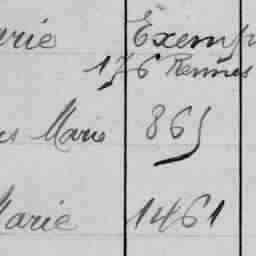 arie Exemp
176 Rennes
es Marie 865
Marie 1461